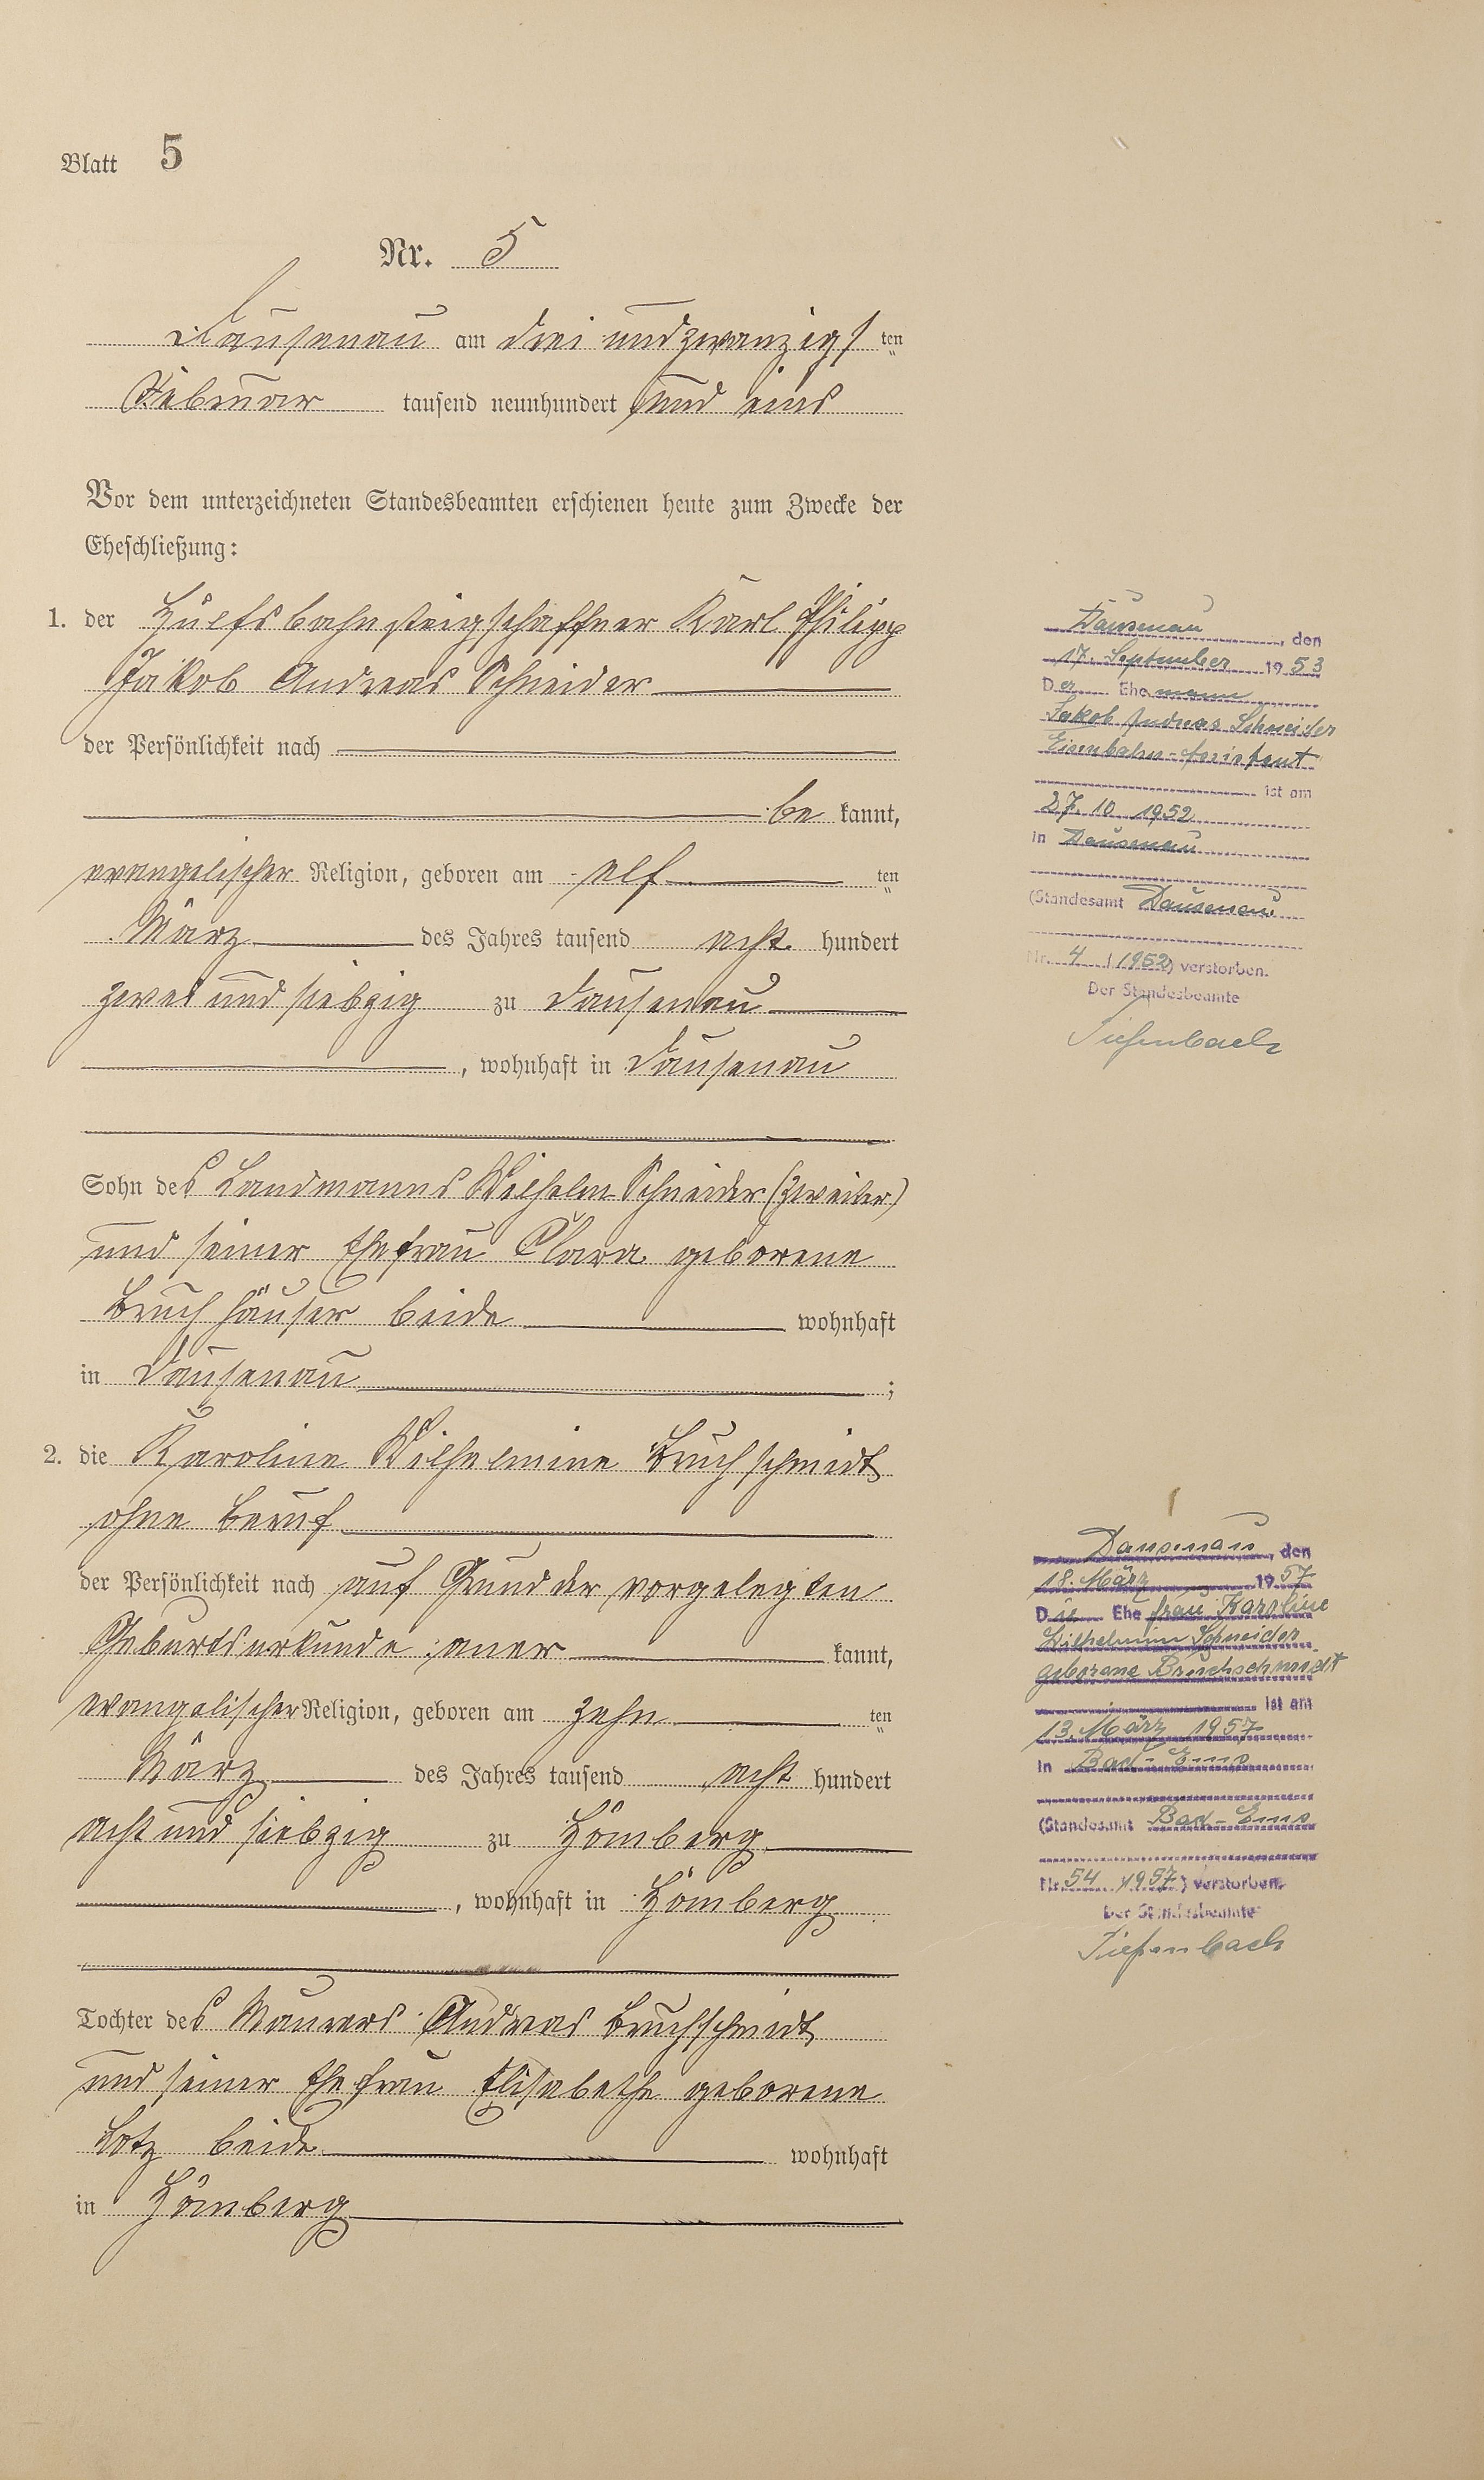 Blatt 5
Nr. 5
Dausenau am drei und zwanzigsten
Februar tausend neunhundert und eins
Vor dem unterzeichneten Standesbeamten erschienen heute zum Zwecke der
Eheschließung:
1. der Hülfsbahnsteigschaffner Karl Philipp
Jakob Andreas Schneider
der Persönlichkeit nach
be kannt,
evangelischer Religion, geboren am elf ten
März des Jahres tausend acht hundert
zwei und siebzig zu Dausenau
, wohnhaft in Dausenau
Sohn des Landmanns Wilhelm Schneider (Zweiter)
und seiner Ehefrau Clara geborene
Bruchhäuser beide wohnhaft
in Dausenau ;
2. die Karoline Wilhelmine Bruchschmidt
ohne Beruf
der Persönlichkeit nach auf Grund der vorgelegten
Geburtsurkunde aner kannt,
evangelischer Religion, geboren am zehn ten
März des Jahres tausend acht hundert
acht und siebzig zu Hömberg
, wohnhaft in Hömberg
Tochter des Maurers Andreas Bruchschmidt
und seiner Ehefrau Elisabethe geborene
Lotz beide wohnhaft
in Hömberg
Dausenau, den
17. September 1953
Der Ehemann
Jakob Andreas Schneider
Eisenbahn-Assistent
ist am
27. 10 1952
in Dausenau
(Standesamt Dausenau
Nr. 4 / 1952) verstorben.
Der Standesbeamte
Tiefenbach
Dausenau, den
18. März 1957
Die Ehefrau Karoline
Wilhelmine Schneider
geborene Bruchschmidt
ist am
13. März 1957
in Bad-Ems
(Standesamt Bad-Ems
Nr. 54 /1957) verstorben.
Der Standesbeamte
Tiefenbach